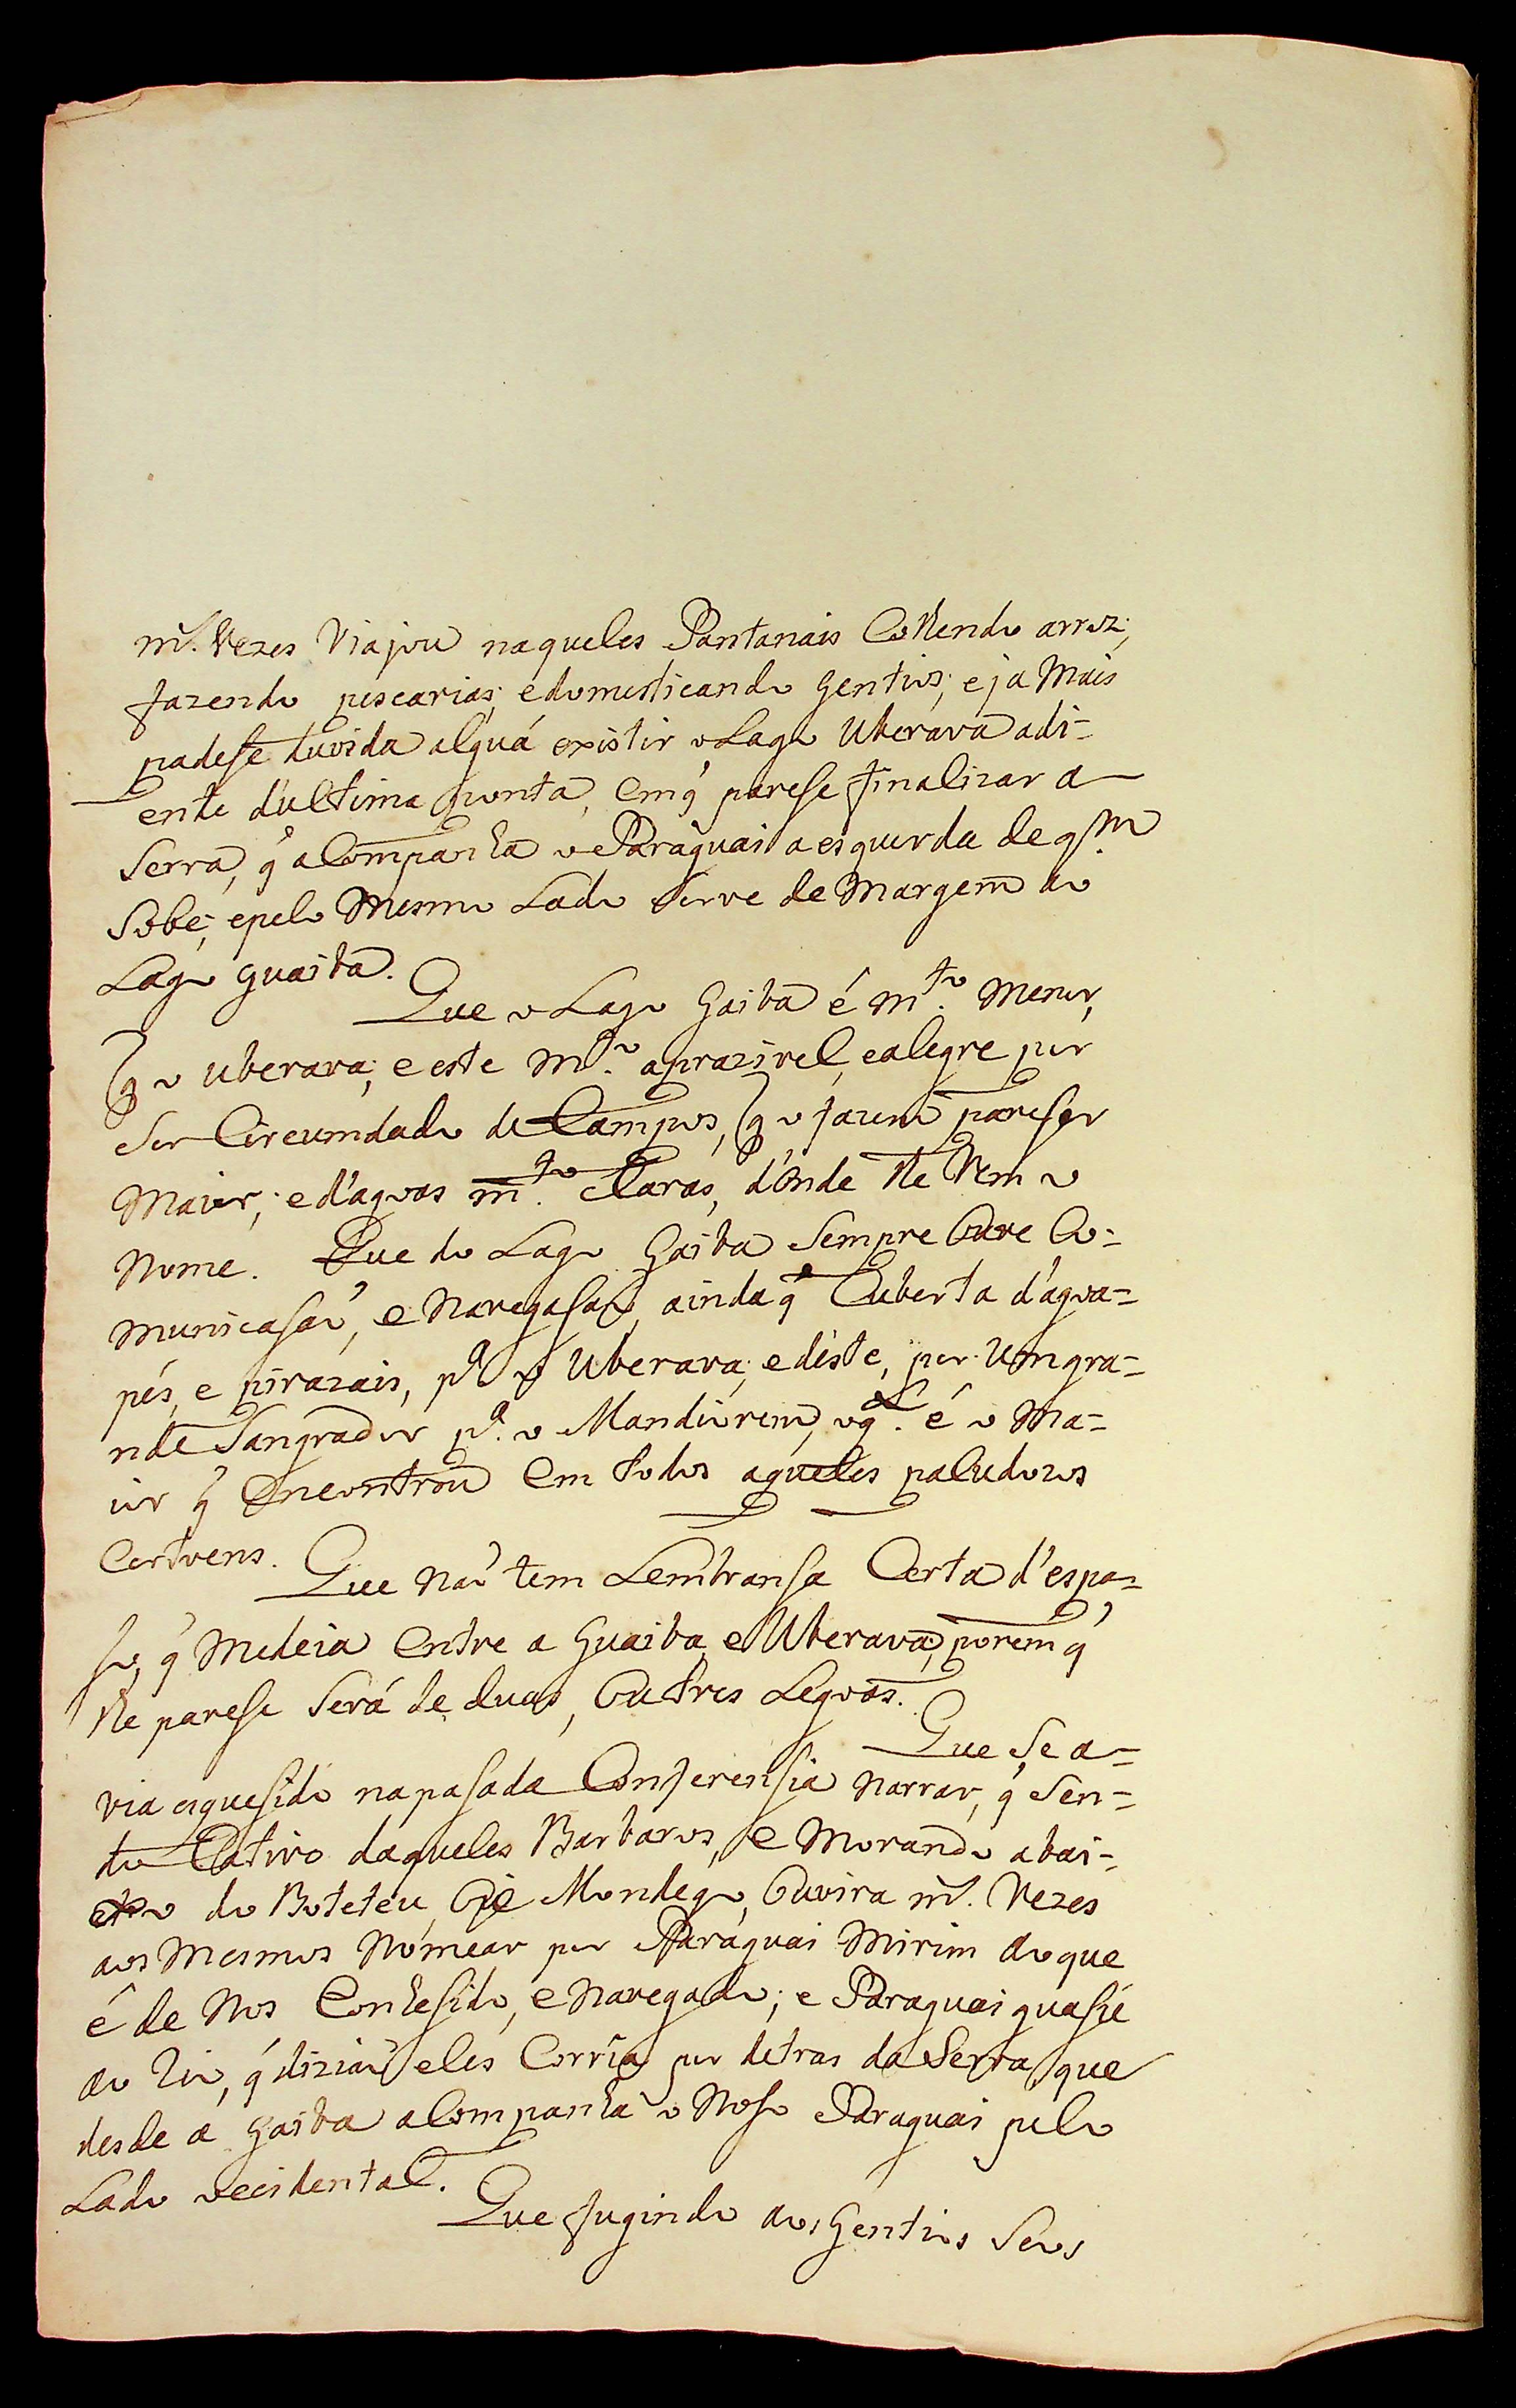 m.s Vezes Viajou naqueles Pantanais Colhendo arroz;
fazendo pescarias; e domesticando gentios; e ja Mais
padese duvida alguá existir o Lago Uberava adi-
ente d'ultima ponta, em q̃ parese finalizar a
Serra, q̃ aCompanha o Paraguai a esquerda de q.m
Sobe; e pelo Mesmo Lado Serve de Margem ao
Lago guaiba.
Que o Lago Gaiba é m.to Menor,
q̃ o Uberava; e este M.to aprazivel, e alegre por
Ser Circumdado de Campos, q̃ o fazem pareser
Maior; e d'agoas m.to Claras, d'onde lhe Vem o
Nome. Que do Lago Gaiba Sempre Ouve Co-
municasaõ, e Navegasaõ, ainda q̃ Cuberta d'agoa-
pés, e pirazais, p.a o Uberava; e déste, por Um gra-
nde Sangrador p.a o Mandiorem, o q.l é o Ma-
ior q̃ Encontrou Em todos aqueles paludozos
Certoens.
Que Naõ tem Lembransa Certa d'espa-
so, q̃ Medeia Entre a Guaiba, e Uberava; porem q̃
lhe parese Será de duas, Ou tres Legoas.
Que Se a-
via esquesido na pasada Conferensia Narrar, q̃ Sen-
do Cativo daqueles Barbaros, e Morando abai-
xo do Boteteu, Oje Mondego, Ouvira m.s Vezes
aos Mesmos Nómear por Paraguai Mirim ao que
é de Nos Conhesido, e Navegado; e Paraguai guasú
ao Rio, q̃ diziaõ eles Corria por detras da Serra, que
desde a Gaiba aCompanha o Noso Paraguai pelo
Lado occidental.
Que fugindo aos Gentios Seos